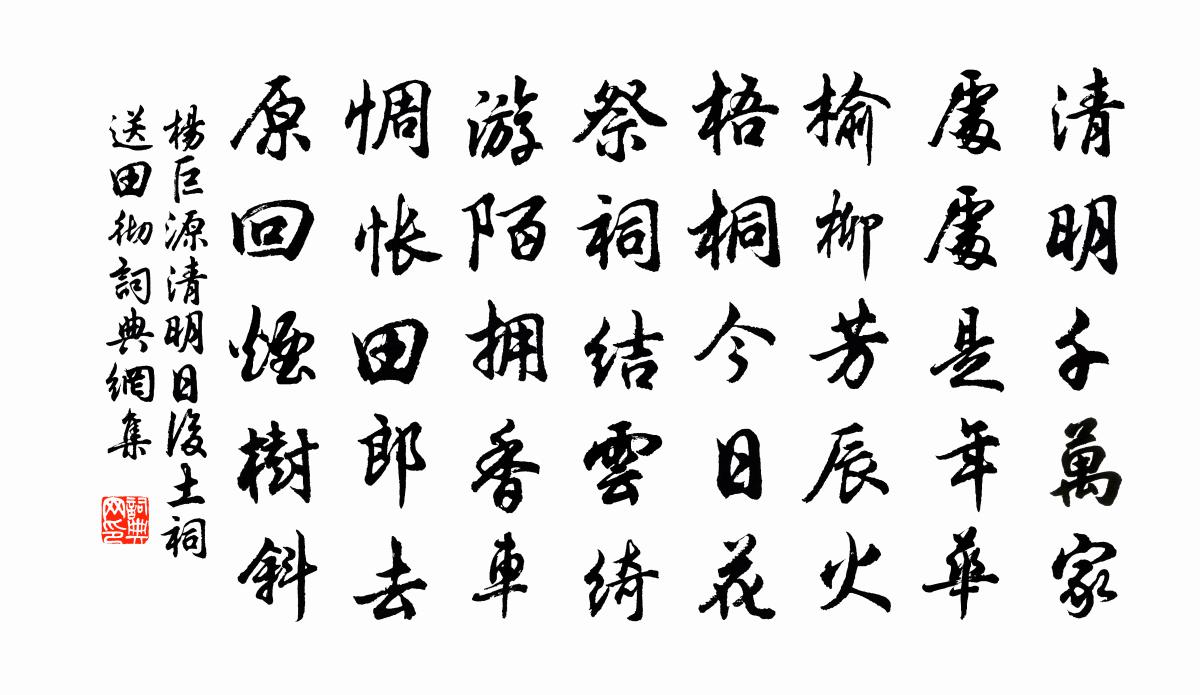 清明千萬家
處處是年華
榆柳芳辰火
梧桐今日花
祭祠結雲綺
游陌拥香車
惆怅田郎去
原回煙樹斜
楊巨源清明日後土祠
送田彻詞典網集
詞典网印